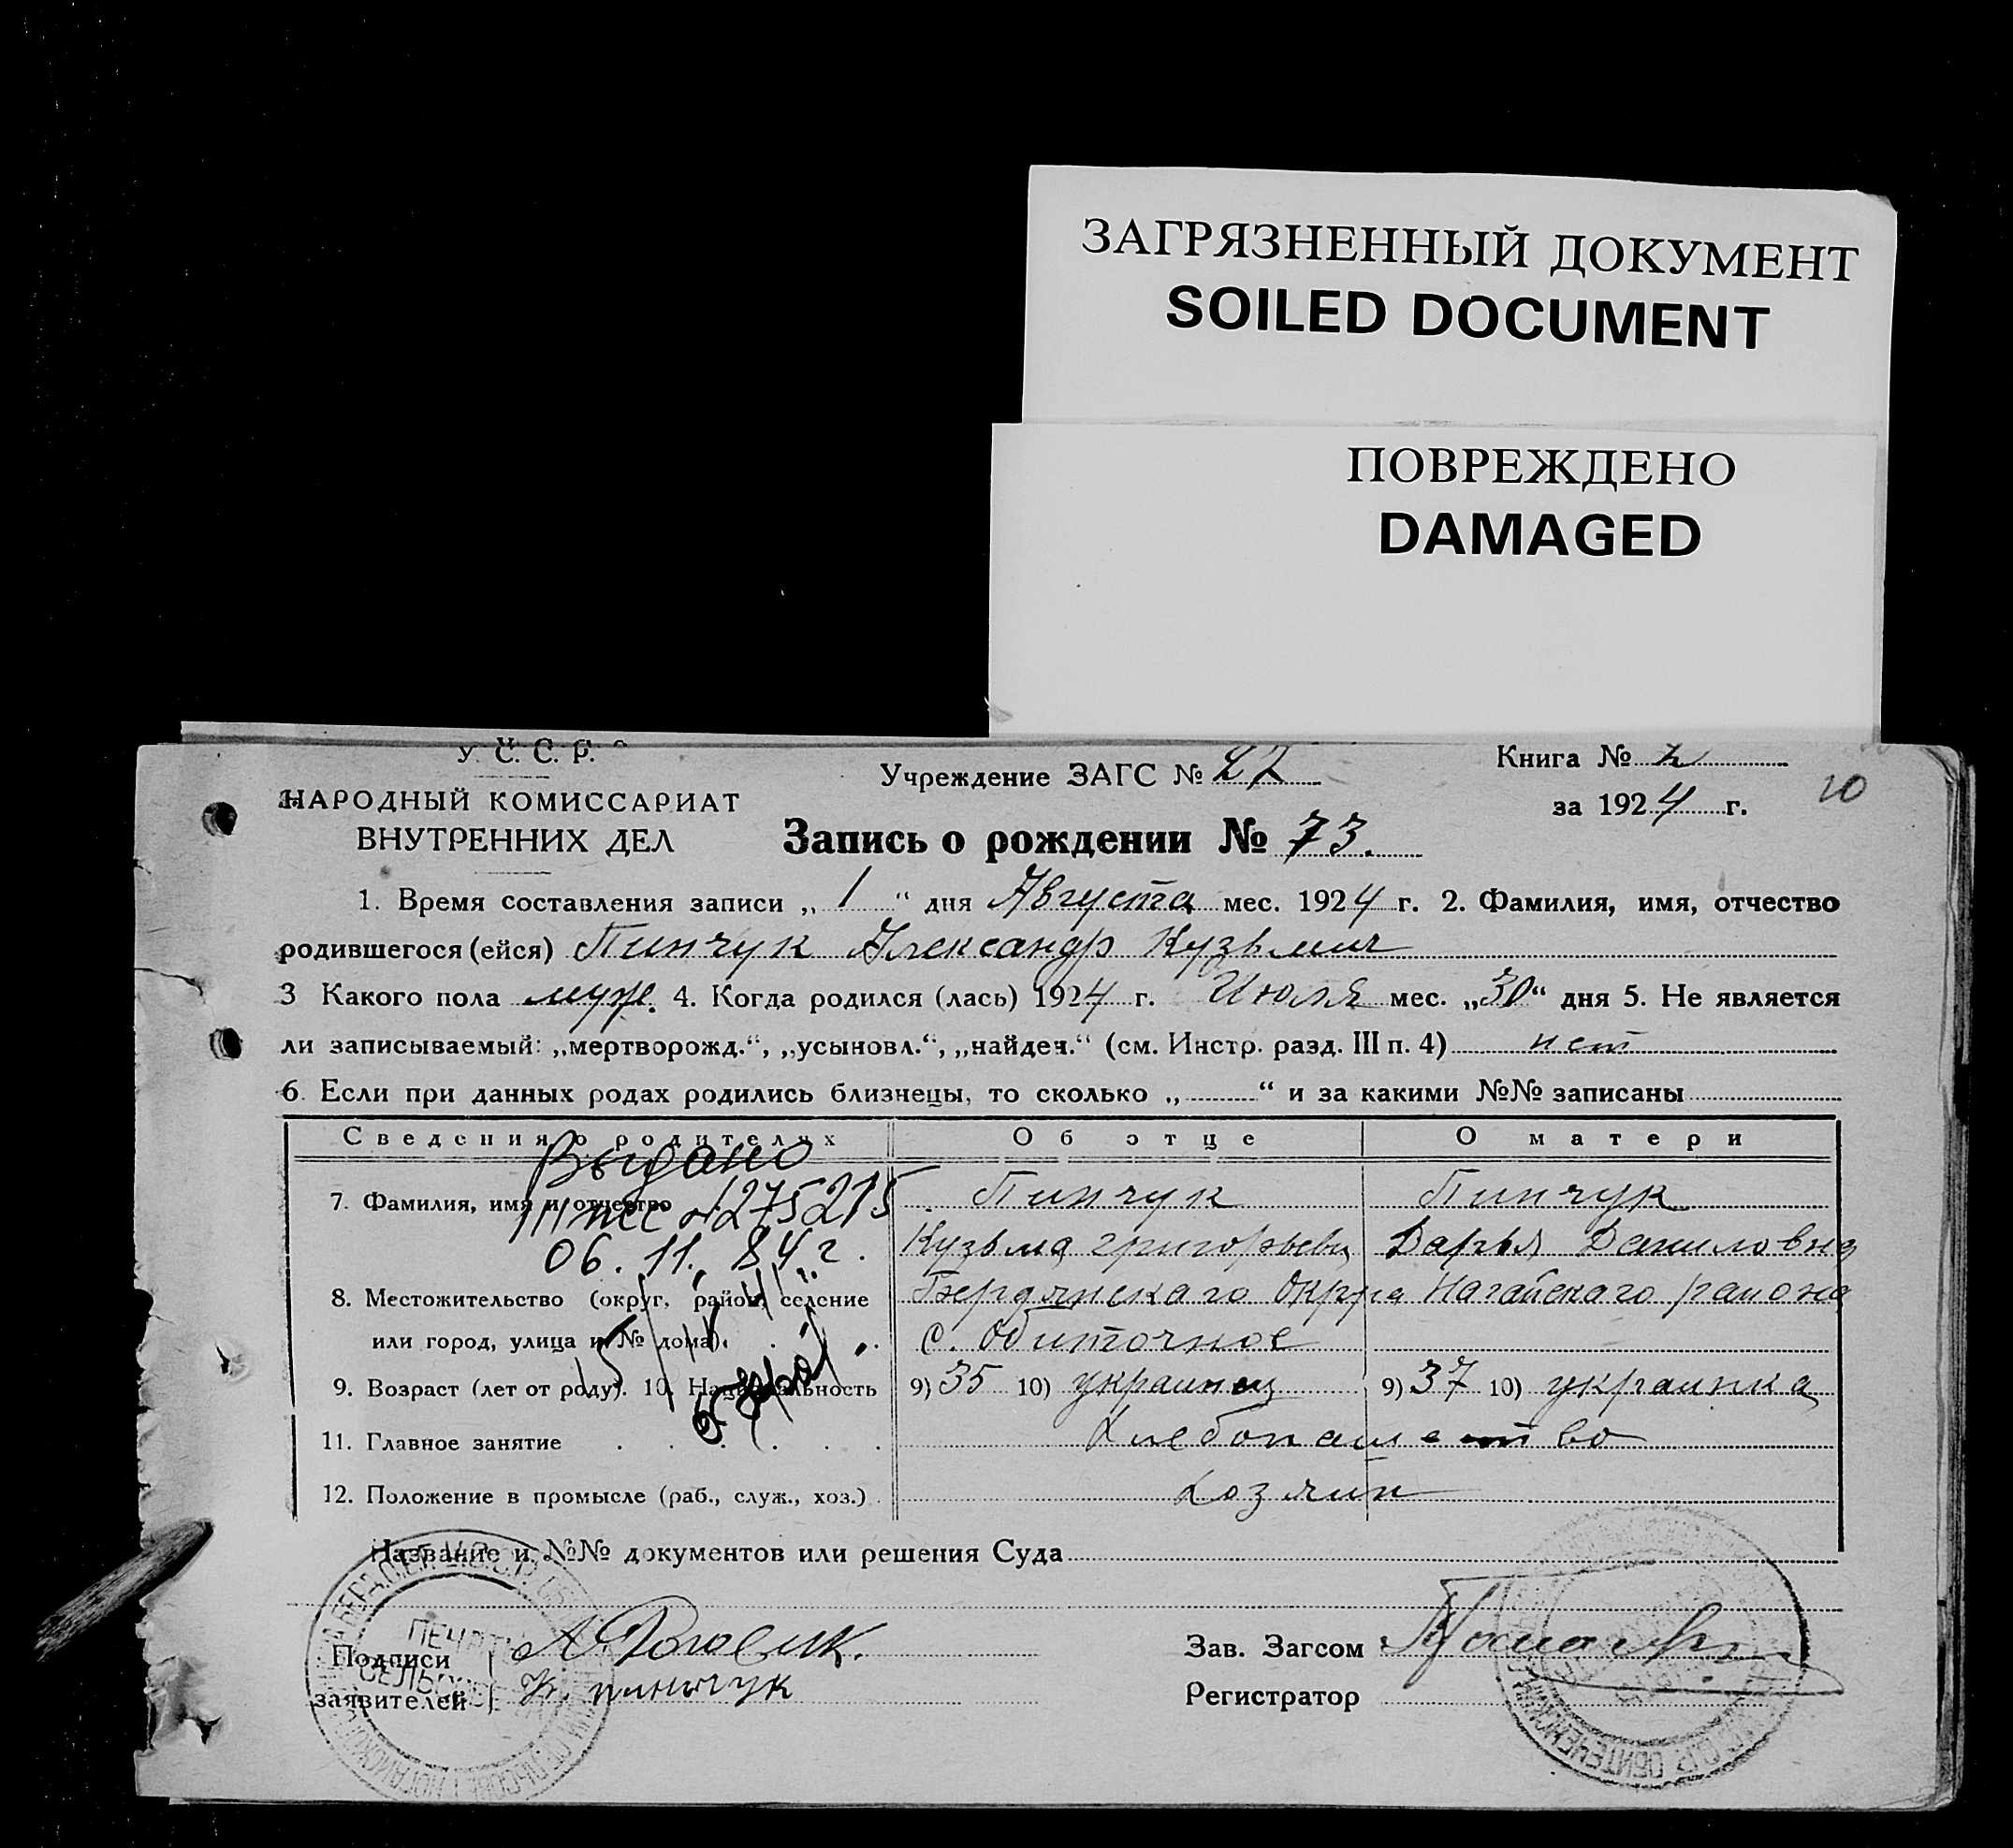 ЗАГРЯЗНЕННЫЙ ДОКУМЕНТ
SOILED DOCUMENT
ПОВРЕЖДЕНО
DAMAGED
У. С. С. Р.
НАРОДНЫЙ КОМИССАРИАТ
ВНУТРЕННИХ ДЕЛ
Учреждение ЗАГС № 27
Книга № 2
за 1924 г.
10
Запись о рождении № 73.
1. Время составления записи „ 1 “ дня Августа мес. 1924 г. 2. Фамилия, имя, отчество
родившегося (ейся) Пинчук Александр Кузьмич
3 Какого пола муж. 4. Когда родился (лась) 1924 г. Июля мес. „30“ дня 5. Не является
ли записываемый: „мертворожд.“, „усыновл.“, „найден.“ (см. Инстр. разд. III п. 4) нет
6. Если при данных родах родились близнецы, то сколько „ “ и за какими №№ записаны
Сведения о родителях Об отце О матери
Выдано
7. Фамилия, имя и отчество Пинчук Пинчук
275215
06. 11. 84 г.
Кузьма григорьевич Дарья Даниловна
8. Местожительство (округ, район, селение Бердянскаго Округа Нагайскаго района
или город, улица и № дома). с. Обиточное
9. Возраст (лет от роду). 10. Национальность 9) 35 10) украинец 9) 37 10) украинка
11. Главное занятие Хлебопашество
12. Положение в промысле (раб., служ., хоз.) Хозяин
Название и №№ документов или решения Суда
Подписи
заявителей К. пинчук
Зав. Загсом
Регистратор
ПЕЧАТЬ